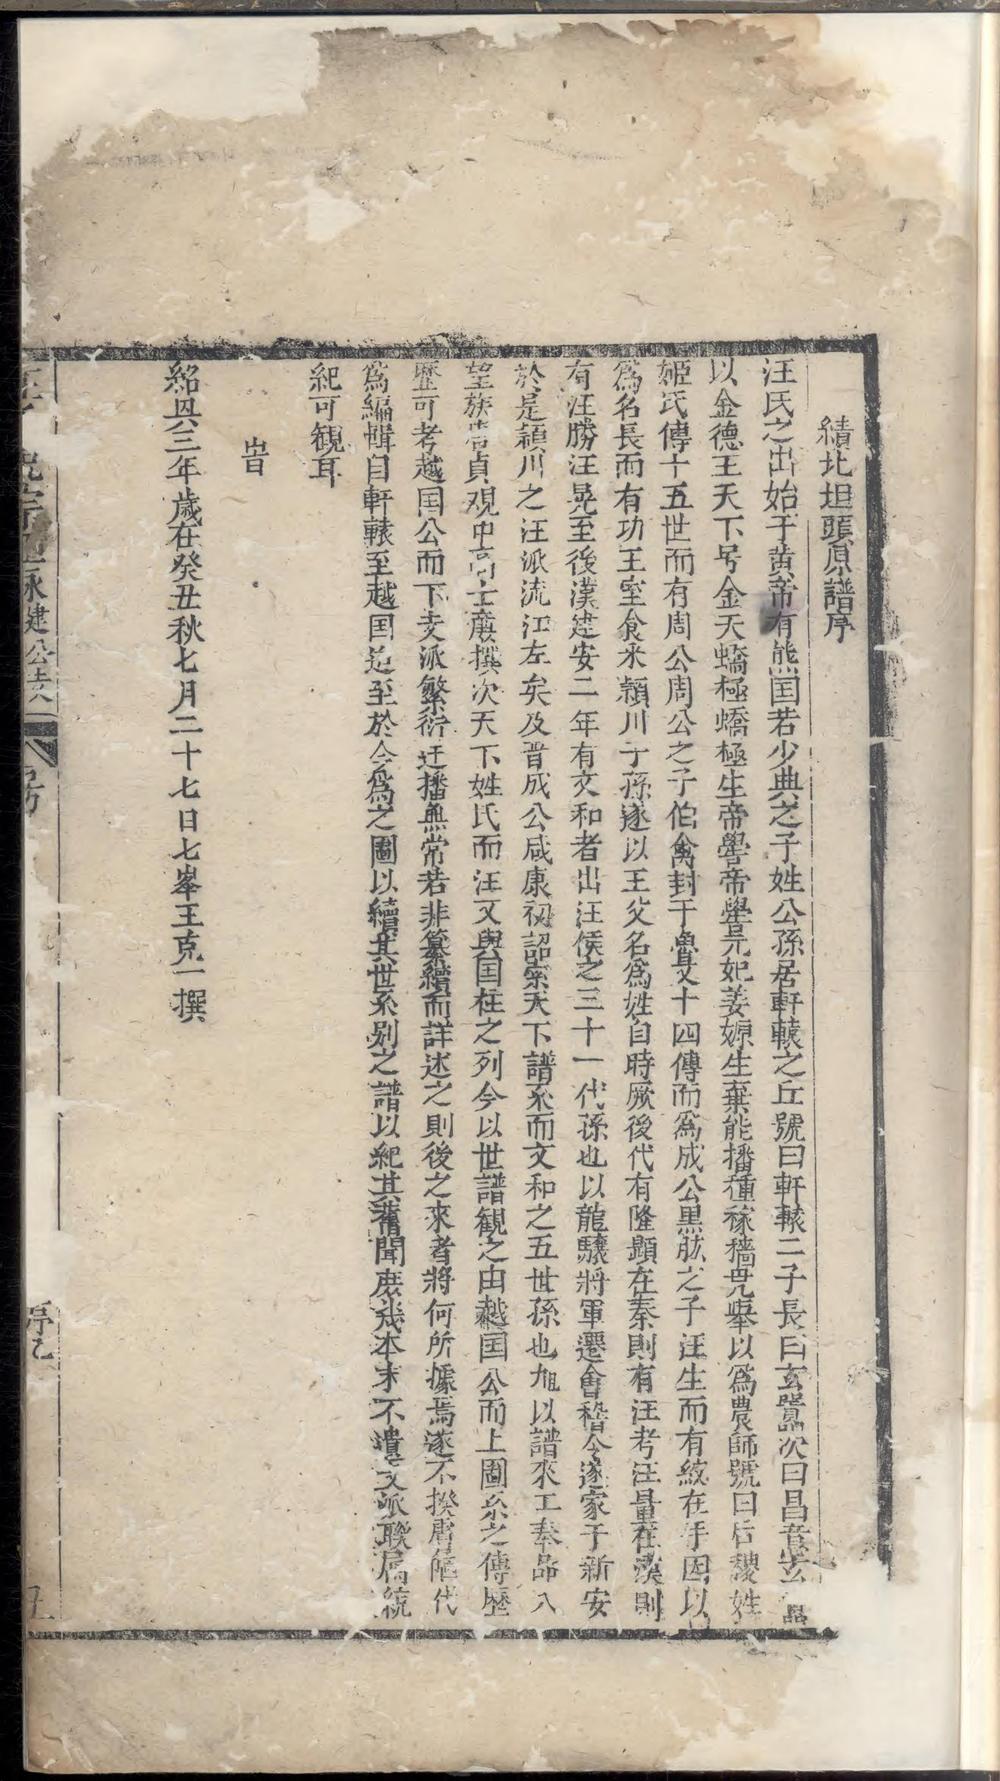 績北坦頭原譜序
汪氏之出始于黄帝有熊囯若少典之子姓公孫居軒轅之丘號曰軒轅二子長曰玄囂次曰昌意玄囂
以金德王天下号金天蟜極蟜極生帝嚳帝嚳元妃姜嫄生棄能播種稼穡堯舉以爲農師號曰后稷姓
姬氏傳十五世而有周公周公之子伯禽封于魯又十四傳而爲成公黒肱之子汪生而有紋在手因以
爲名長而有功王室食釆頴川子孫遂以王父名爲姓自時厥後代有隆顯在秦則有汪考汪量在漢則
有汪勝汪晃至後漢建安二年有文和者出汪侯之三十一代孫也以龍驤將軍遷會稽令遂家于新安
於是頴川之汪派流江左矣及晋成公咸康初詔索天下譜系而文和之五世孫也旭以譜來上奉品入
望族唐貞观中高士廉撰次天下姓氏而汪又與囯柱之列今以世譜観之由越囯公而上圖系之傳歷
歷可考越囯公而下支派繁衍迁播無常若非纂續而詳述之則後之來者將何所據焉遂不揆膚陋代
爲編輯自軒轅至越囯迄至於今爲之圖以續其世系别之譜以紀其舊聞庻幾本末不遺支派聯属統
紀可観耳
旹
紹興三年歲在癸丑秋七月二十七日七峯王克一撰
永建公支
序